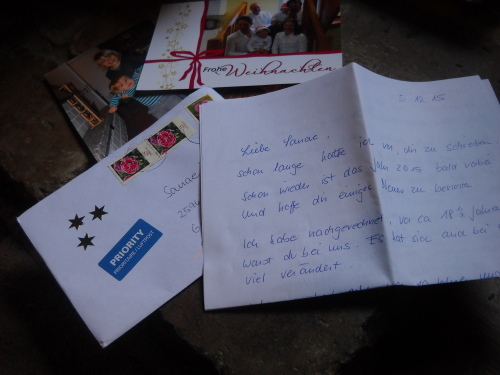 Frohe Weihnachten
PRIORITY
PRIORITAIRE / LUFTPOST
Sanae
2594
5.12.15
Liebe Sanae,
schon lange hatte ich vor, dir zu schreiben.
Schon wieder ist das Jahr 2015 bald vorbei
und hoffe dir einiges Neues zu berichten
Ich habe nachgerechnet, vor ca 18 ½ Jahren
warst du bei uns. Es hat sich auch bei
viel verändert.